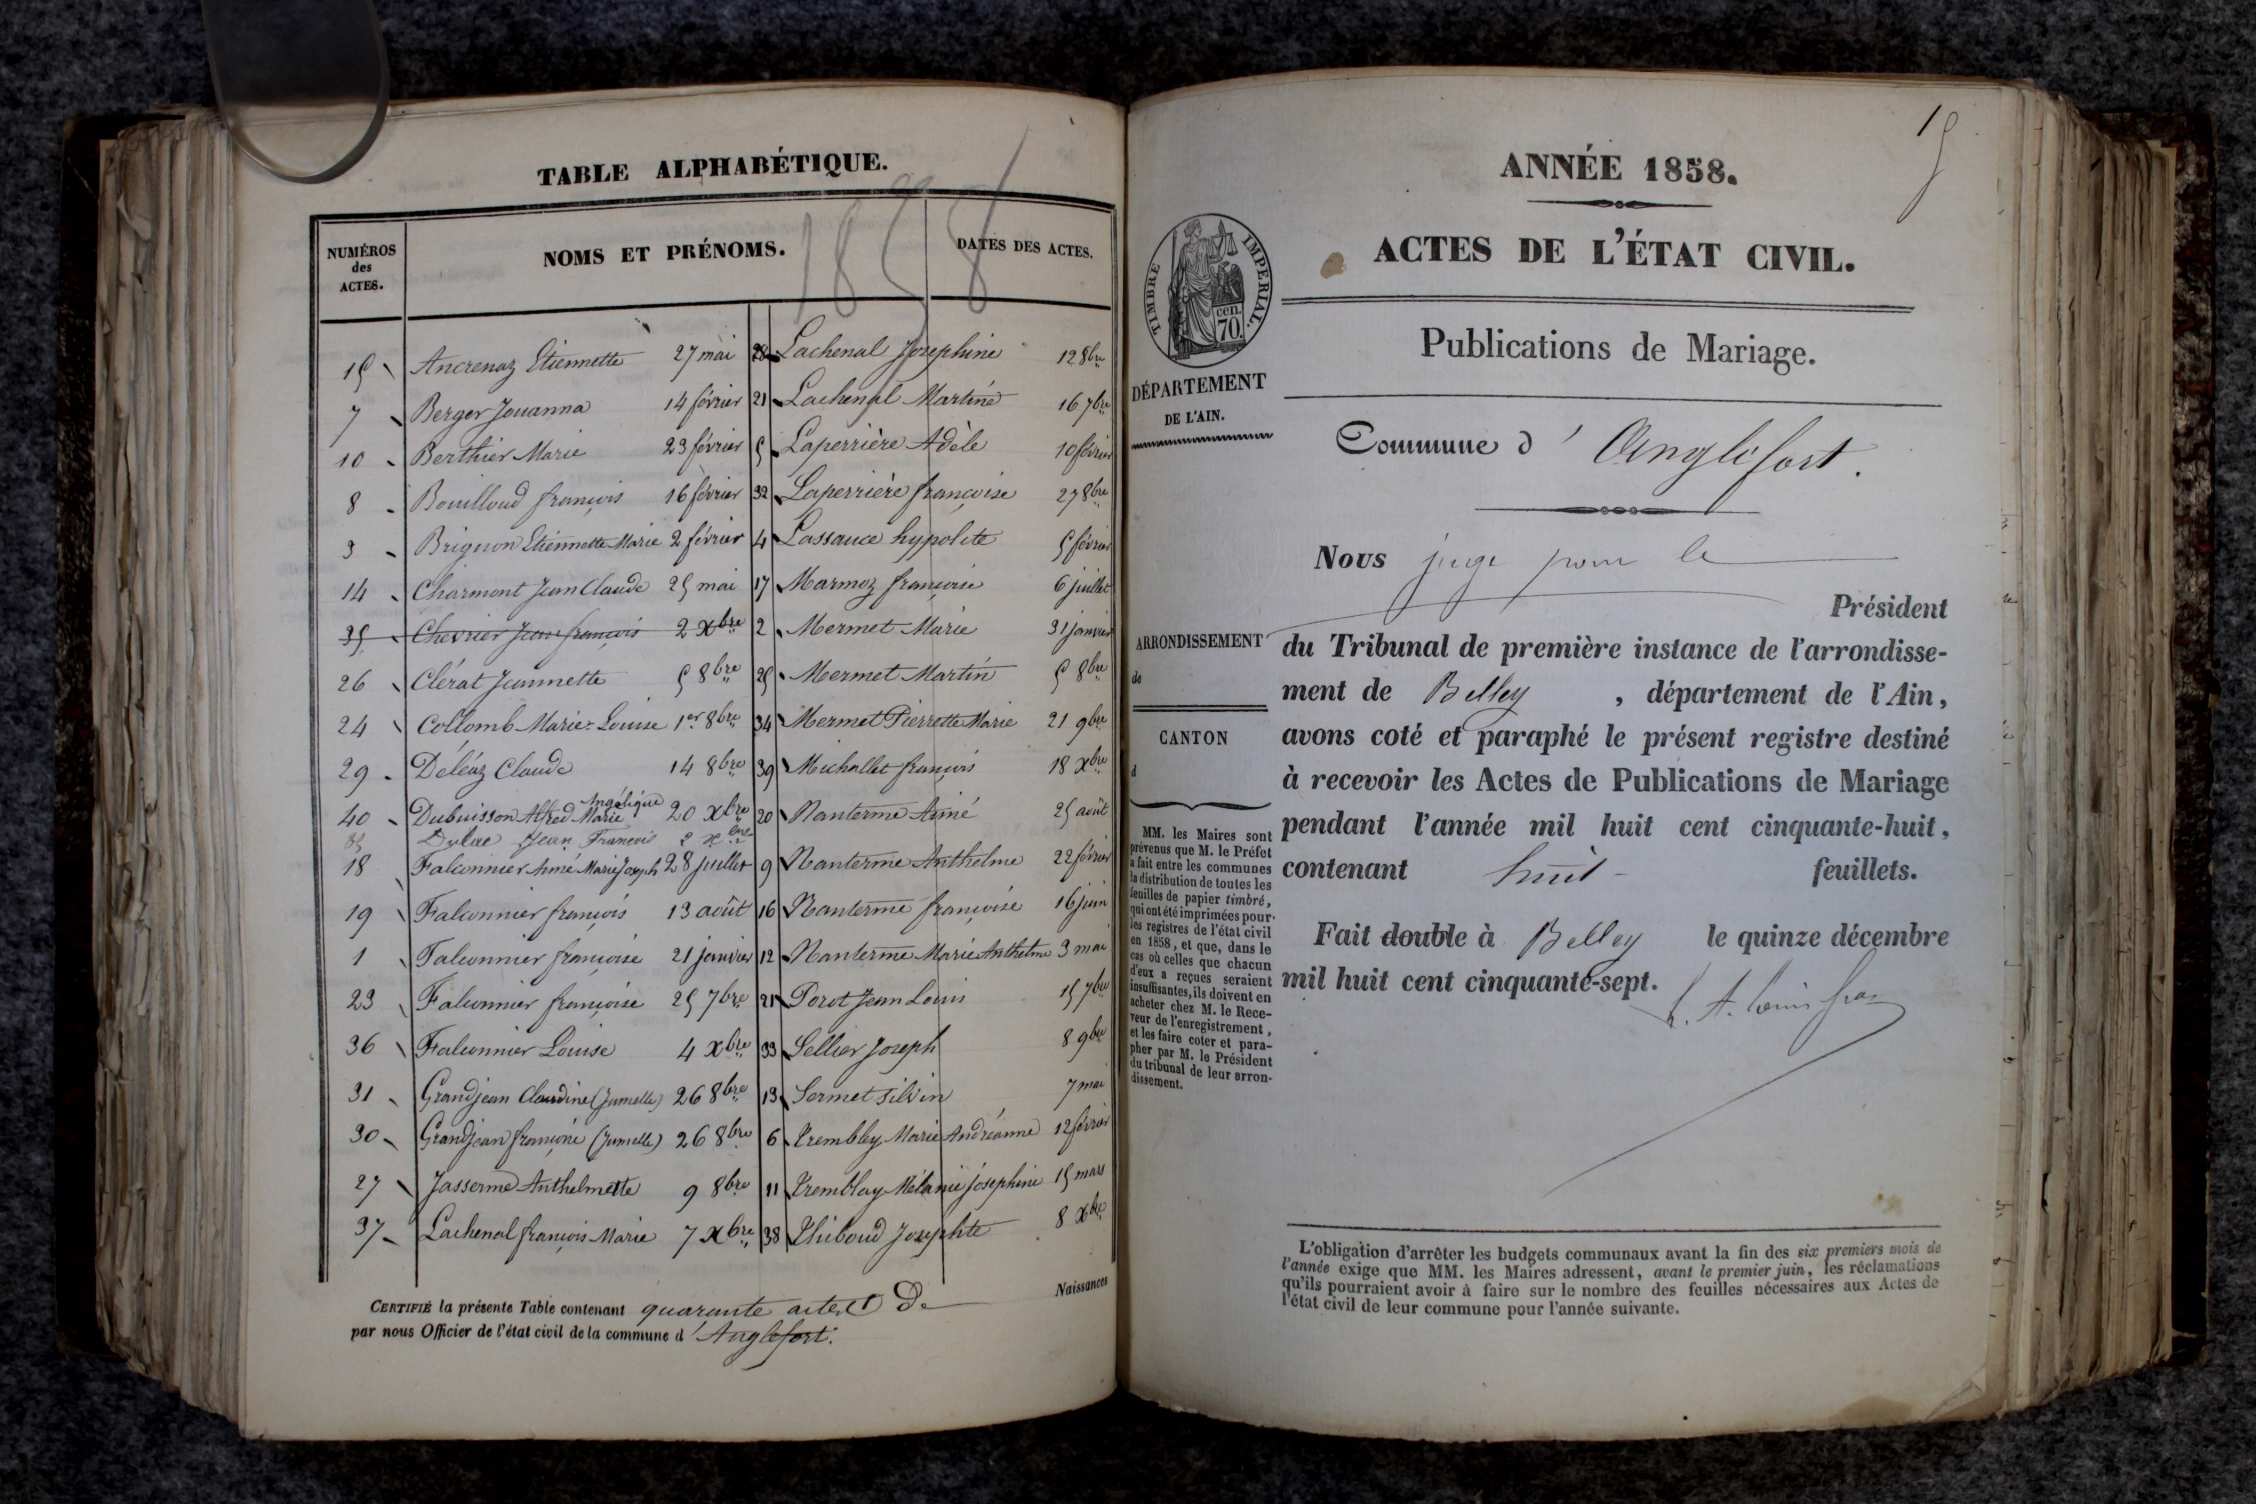 TABLE ALPHABÉTIQUE.
1858
NUMÉROS
des
ACTES.
NOMS ET PRÉNOMS.
DATES DES ACTES.
15 Ancrenaz Etiennette 27 mai
7 Berger Jouanna 14 février
10 Berthier Marie 23 février
8 Bouilloud françois 16 février
3 Brignon Etiennette Marie 2 février
14 Charmont Jean Claude 25 mai
35 Chevrier Jean françois 2 Xbre
26 Clérat Jeannette 5 8bre
24 Collomb Marie-Louise 1er 8bre
29 Déléaz Claude 14 8bre
40 Dubuisson Alfred Marie Angélique 20 Xbre
35 Dulac Jean Francois 2 Xbre
18 Falconnier Aimé Marie Joseph 28 juillet
19 Falconnier françois 13 août
1 Falconnier françoise 21 janvier
23 Falconnier françoise 25 7bre
36 Falconnier Louise 4 Xbre
31 Grandjean Claudine (Jumelle) 26 8bre
30 Grandjean françoise (Jumelle) 26 8bre
27 Jasserme Anthelmette 9 8bre
37 Lachenal françois Marie 7 Xbre
28 Lachenal Josephine 12 8bre
21 Lachenal Martine 16 7bre
5 Laperrière Adèle 10 février
32 Laperrière françoise 27 8bre
4 Lassauce hypolite 5 février
17 Marmoz françoise 6 juillet
2 Mermet Marie 31 janvier
25 Mermet Martin 5 8bre
34 Mermet Pierrette Marie 21 9bre
39 Michallet françois 18 Xbre
20 Nanterme Aimé 25 août
9 Nanterme Anthelme 22 février
16 Nanterme françoise 16 juin
12 Nanterme Marie Anthelme 3 mai
21 Porot Jean Louis 15 7bre
33 Sellier Joseph 8 9bre
13 Sermet Silvin 7 mai
6 Trembley Marie Andréanne 12 février
11 Tremblay Mélanie josephine 15 mars
38 Thiboud Josephte 8 Xbre
CERTIFIÉ la présente Table contenant quarante actes De Naissances
par nous Officier de l'état civil de la commune d'Anglefort.
15
ANNÉE 1858.
ACTES DE L'ÉTAT CIVIL.
TIMBRE IMPERIAL.
cen.
70.
Publications de Mariage.
DÉPARTEMENT
DE L'AIN.
Commune d'Anglefort.
Nous juge pour le
Président
ARRONDISSEMENT
de
CANTON
d
du Tribunal de première instance de l'arrondisse-
ment de Belley, département de l'Ain,
avons coté et paraphé le présent registre destiné
à recevoir les Actes de Publications de Mariage
pendant l'année mil huit cent cinquante-huit,
contenant huit feuillets.
Fait double à Belley le quinze décembre
mil huit cent cinquante-sept.
MM. les Maires sont
prévenus que M. le Préfet
a fait entre les communes
la distribution de toutes les
feuilles de papier timbré,
qui ont été imprimées pour
les registres de l'état civil
en 1858, et que, dans le
cas où celles que chacun
d'eux a reçues seraient
insuffisantes, ils doivent en
acheter chez M. le Rece-
veur de l'enregistrement,
et les faire coter et para-
pher par M. le Président
du tribunal de leur arron-
dissement.
L'obligation d'arrêter les budgets communaux avant la fin des six premiers mois de
l'année exige que MM. les Maires adressent, avant le premier juin, les réclamations
qu'ils pourraient avoir à faire sur le nombre des feuilles nécessaires aux Actes de
l'état civil de leur commune pour l'année suivante.